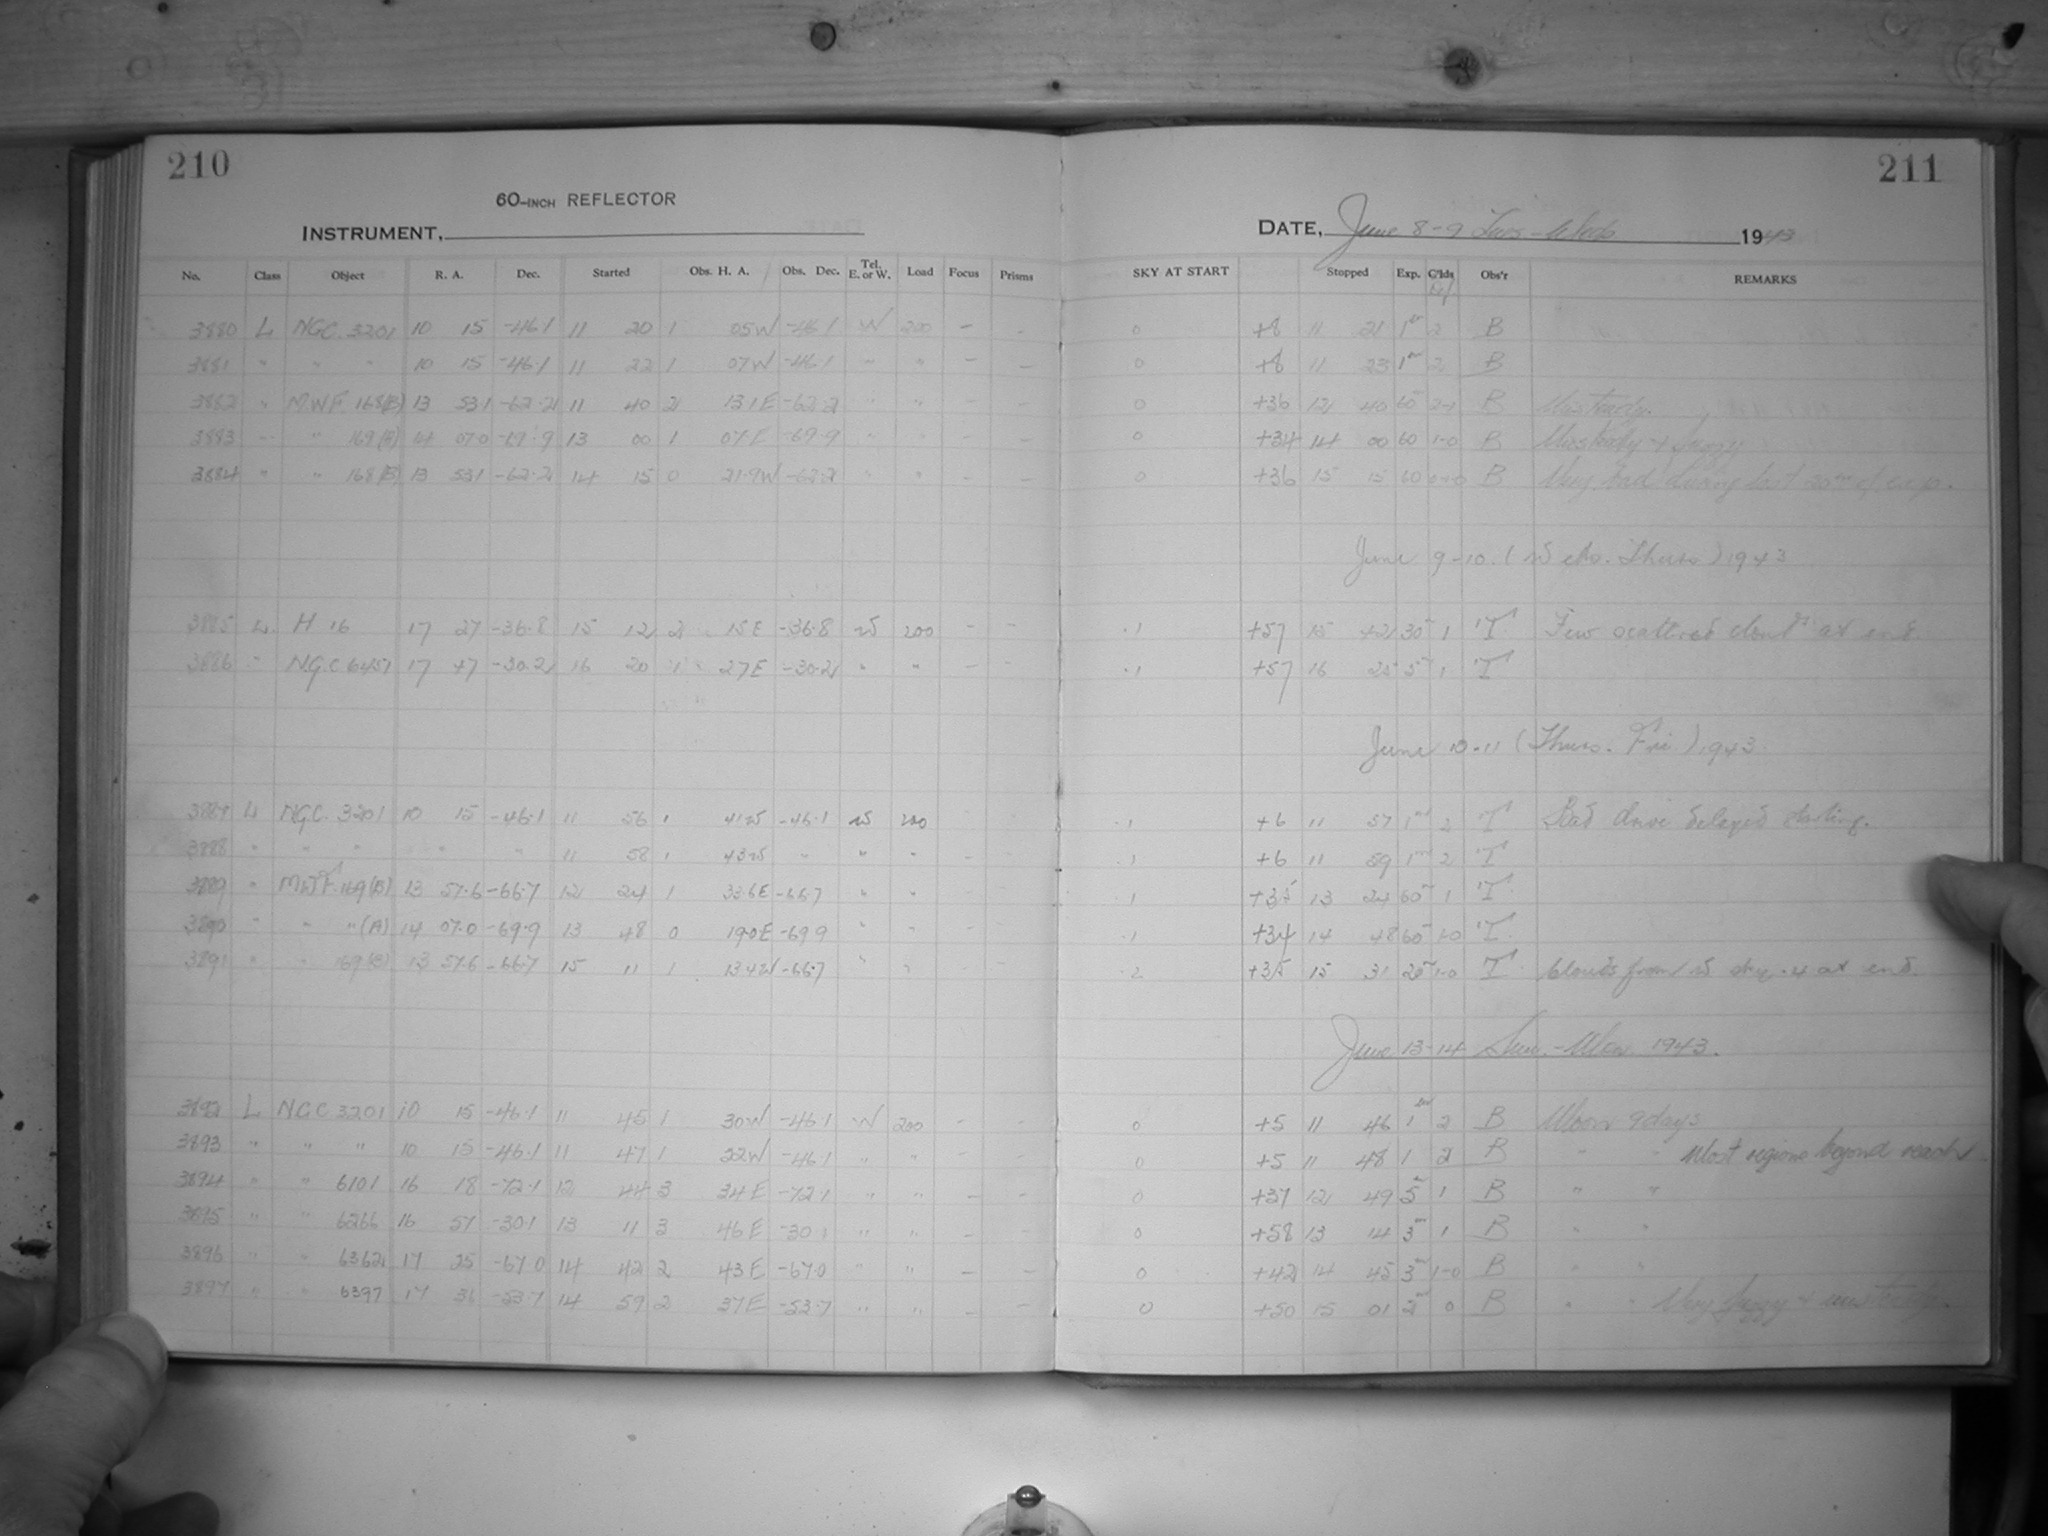 210
60-INCH REFLECTOR
INSTRUMENT,
No. Class Object R. A. Dec. Started Obs. H. A. Obs. Dec. Tel. E. or W. Load Focus Prisms
3880 L NGC 3201 10 15 -46.1 11 20 1 05W -46.1 W 200 - -
3881 " " " 10 15 -46.1 11 22 1 07W -46.1 " " - -
3882 " M.W.F. 168(B) 13 53.1 -62.2 11 40 2 13.1E -62.2 " " - -
3883 " " 169(A) 14 07.0 -69.9 13 00 1 07E -69.9 " " - -
3884 " " 168(B) 13 53.1 -62.2 14 15 0 21.9W -62.2 " " - -
3885 L H 16 17 27 -36.8 15 12 2 15E -36.8 W 200 - -
3886 " N.G.C 6451 17 47 -30.2 16 20 1 27E -30.2 " " - -
3887 L N.G.C. 3201 10 15 -46.1 11 56 1 41W -46.1 W 200
3888 " " " " " " 11 58 1 43W " " " - -
3889 " MWF. 169(B) 13 57.6 -66.7 12 24 1 33.6E -66.7 " " - -
3890 " " "(A) 14 07.0 -69.9 13 48 0 19.0E -69.9 " " - -
3891 " " 169(B) 13 57.6 -66.7 15 11 1 13.4W -66.7 " " - -
3892 L N.G.C 3201 10 15 -46.1 11 45 1 30W -46.1 W 200 - -
3893 " " " 10 15 -46.1 11 47 1 22W -46.1 " " - -
3894 " " 6101 16 18 -72.1 12 44 3 34E -72.1 " " - -
3895 " " 6266 16 57 -30.1 13 11 3 46E -30.1 " " - -
3896 " " 6362 17 25 -67.0 14 42 2 43E -67.0 " " - -
3897 " " 6397 17 36 -53.7 14 59 2 37E -53.7 " " - -
211
DATE, June 8-9 Tues-Weds 1943
SKY AT START Stopped Exp. G'lds Obs'r REMARKS
0 +8 11 21 1m 2 B
0 +8 11 23 1m 2 B
0 +36 12 40 60 2-1 B Unsteady.
0 +34 14 00 60 1-0 B Unsteady + fuzzy
0 +36 15 15 60 B Very bad during last 20m of exp.
June 9-10. (Weds. Thurs) 1943
.1 +57 15 42 30m 1 T Few scattered clouds at end.
.1 +57 16 25 5m 1 T
June 10-11 (Thurs. Fri.) 1943.
.1 +6 11 57 1m 2 T Bad drive delayed starting.
.1 +6 11 59 1m 2 T
.1 +35 13 24 60m 1 T
.1 +34 14 48 60m 1-0 T
.2 +35 15 31 20m 1-0 T Clouds from W sky .4 at end.
June 13-14 Sun.-Mon 1943.
0 +5 11 46 1m 2 B Moon 9 days
0 +5 11 48 1 2 B " " Most regions beyond reach
0 +37 12 49 5m 1 B " "
0 +58 13 14 3m 1 B " "
0 +42 14 45 3m 1-0 B " "
0 +50 15 01 2m 0 B " " Very fuzzy + unsteady.